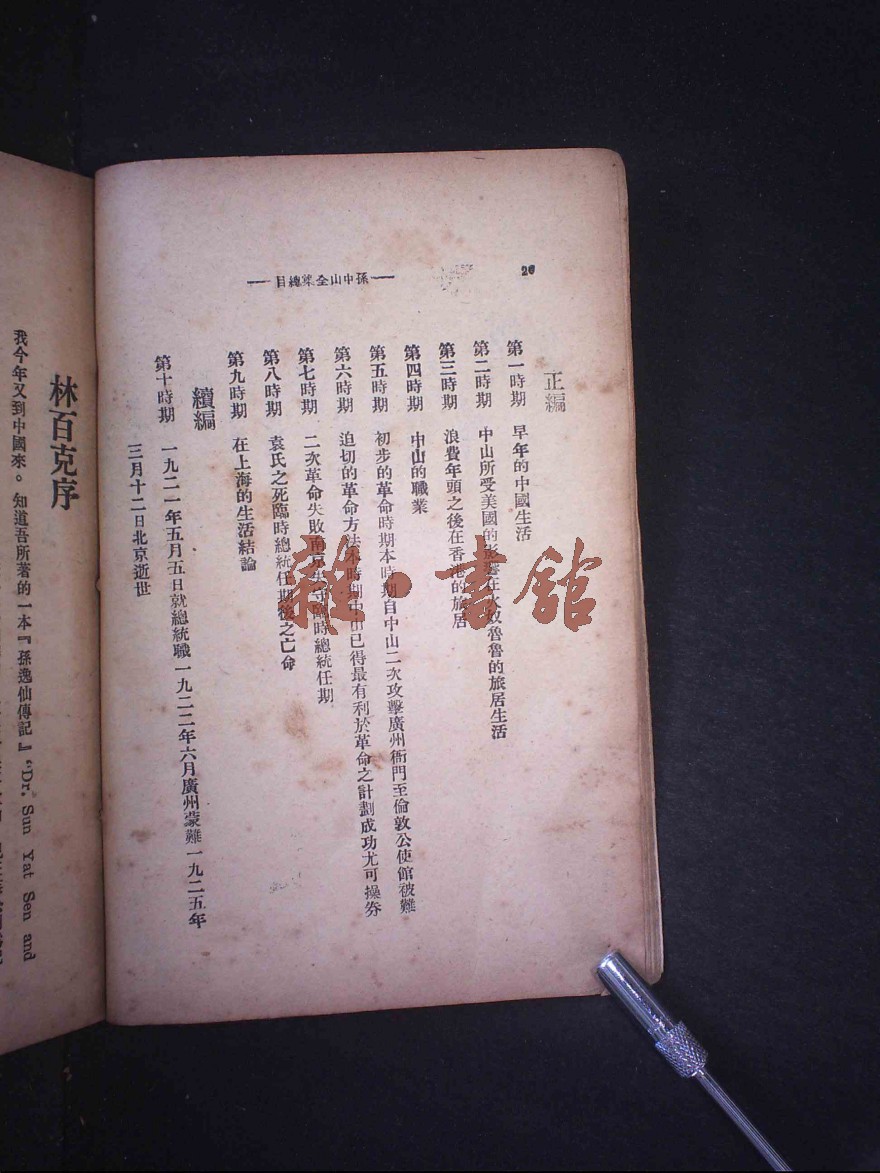 26
一孫中山全集總目一
正編
第一時期 早年的中國生活
第二時期 中山所受美國的影響在火敗魯魯的旅居生活
第三時期 浪費年頭之後在香港的旅居
第四時期 中山的職業
第五時期 初步的革命時期本時期自中山二次攻擊廣州衙門至倫敦公使館被難
第六時期 迫切的革命方法本時期中山已得最有利於革命之計劃成功尤可操券
第七時期 二次革命失敗南京失守臨時總統任期
第八時期 袁氏之死臨時總統任期後之亡命
第九時期 在上海的生活結論
續編
第十時期 一九二一年五月五日就總統職一九二二年六月廣州蒙難一九二五年
三月十二日北京逝世
林百克序
我今年又到中國來。知道吾所著的一本『孫逸仙傳記』“Dr. Sun Yat Sen and
雜·書館